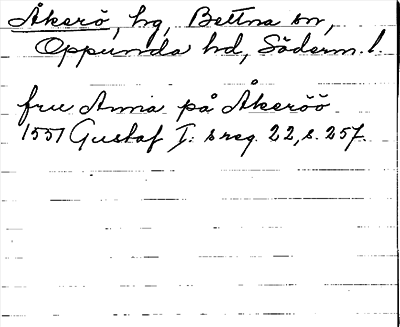 Åkerö, hg, Bettna sn,
Oppunda hd, Söderm. l.
fru Anna på Åkeröö
1551 Gustaf I: s reg. 22, s. 257.